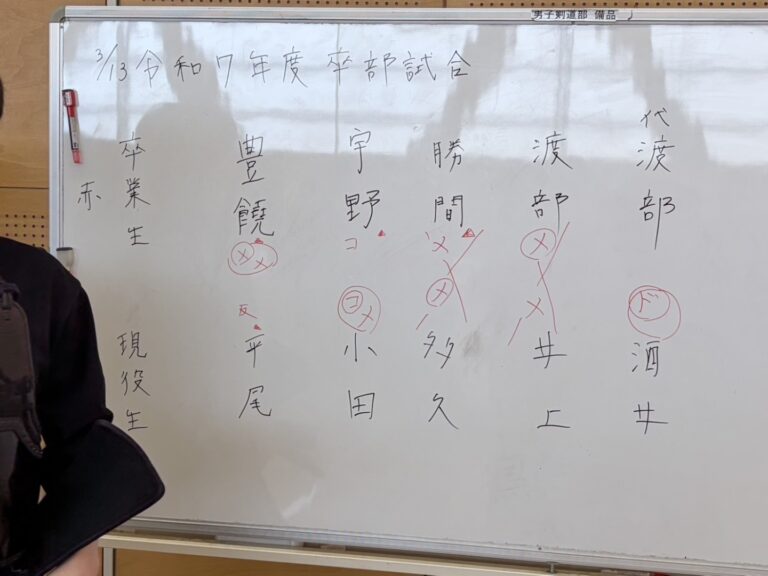 男子剣道部 備品
3/13 令和7年度 卒部試合
赤 卒業生
豊饒
宇野
勝間
渡部
代 渡部
メメ
コ
メ
メ
反
コメ
メ
メ
ド
現役生
平尾
小田
多久
井上
酒井